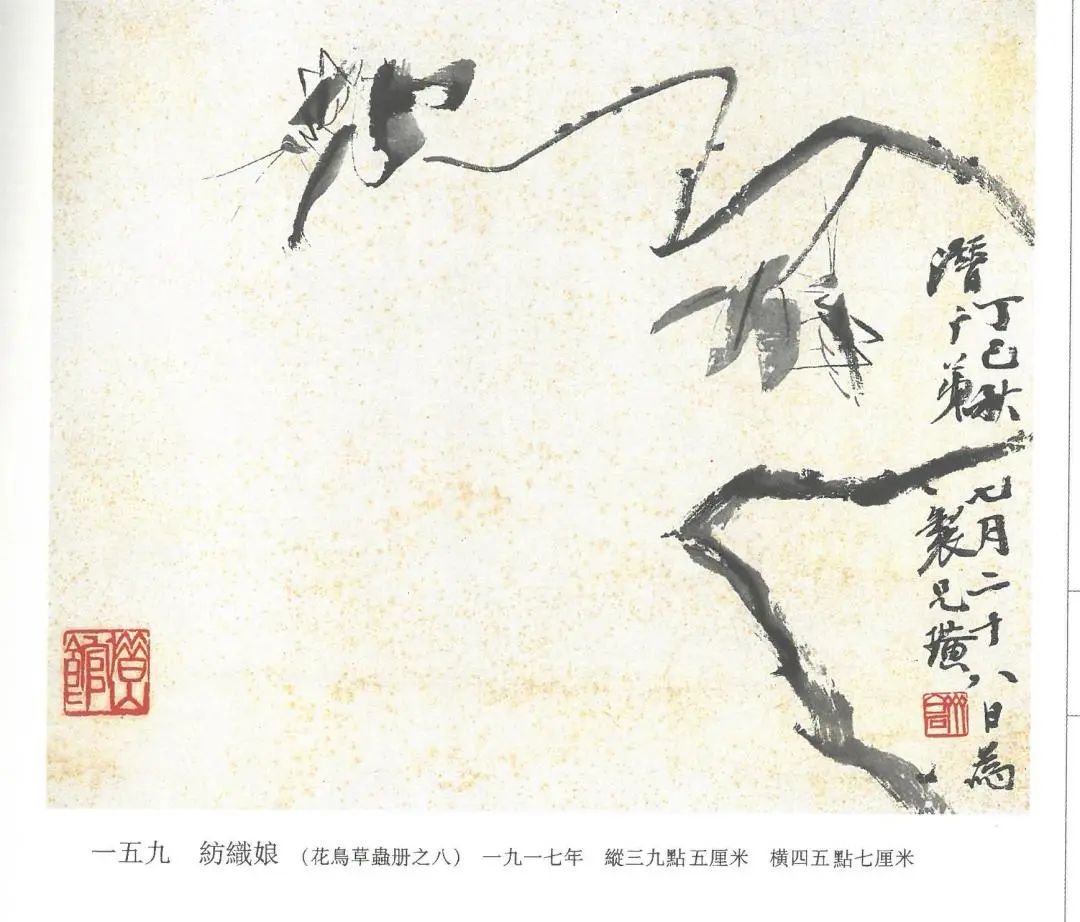 丁巳秋七月二十八日為
潛广弟製兄璜
借山館
一五九 紡織娘 (花鳥草蟲册之八) 一九一七年 縱三九點五厘米 横四五點七厘米